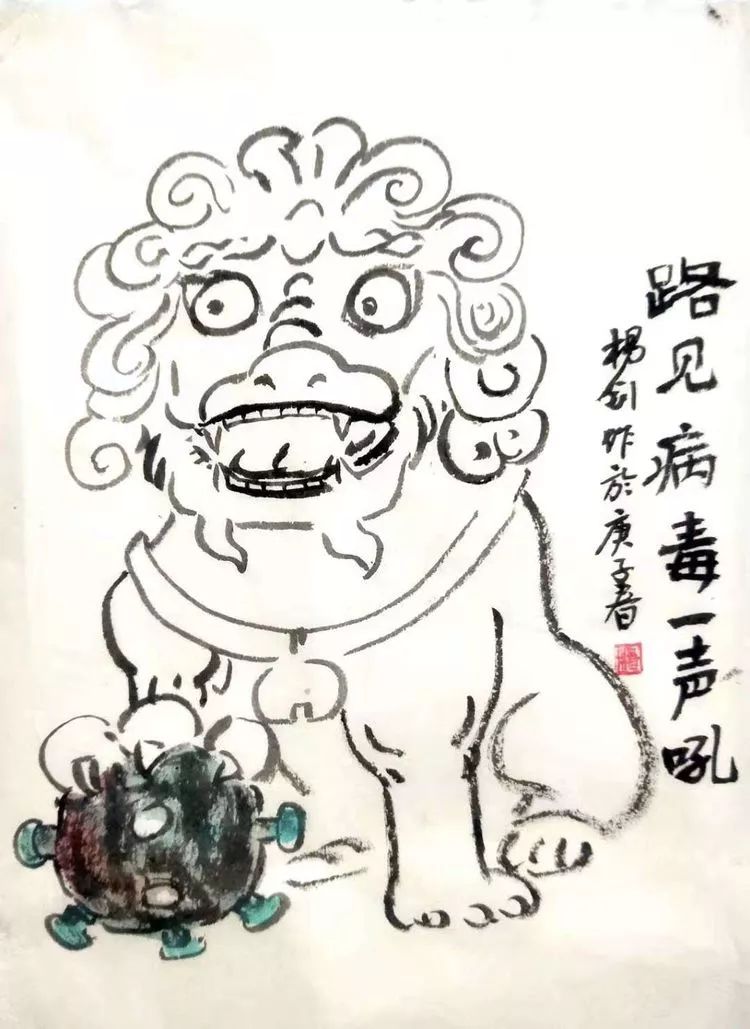 路见病毒一声吼
杨剑昨於庚子春